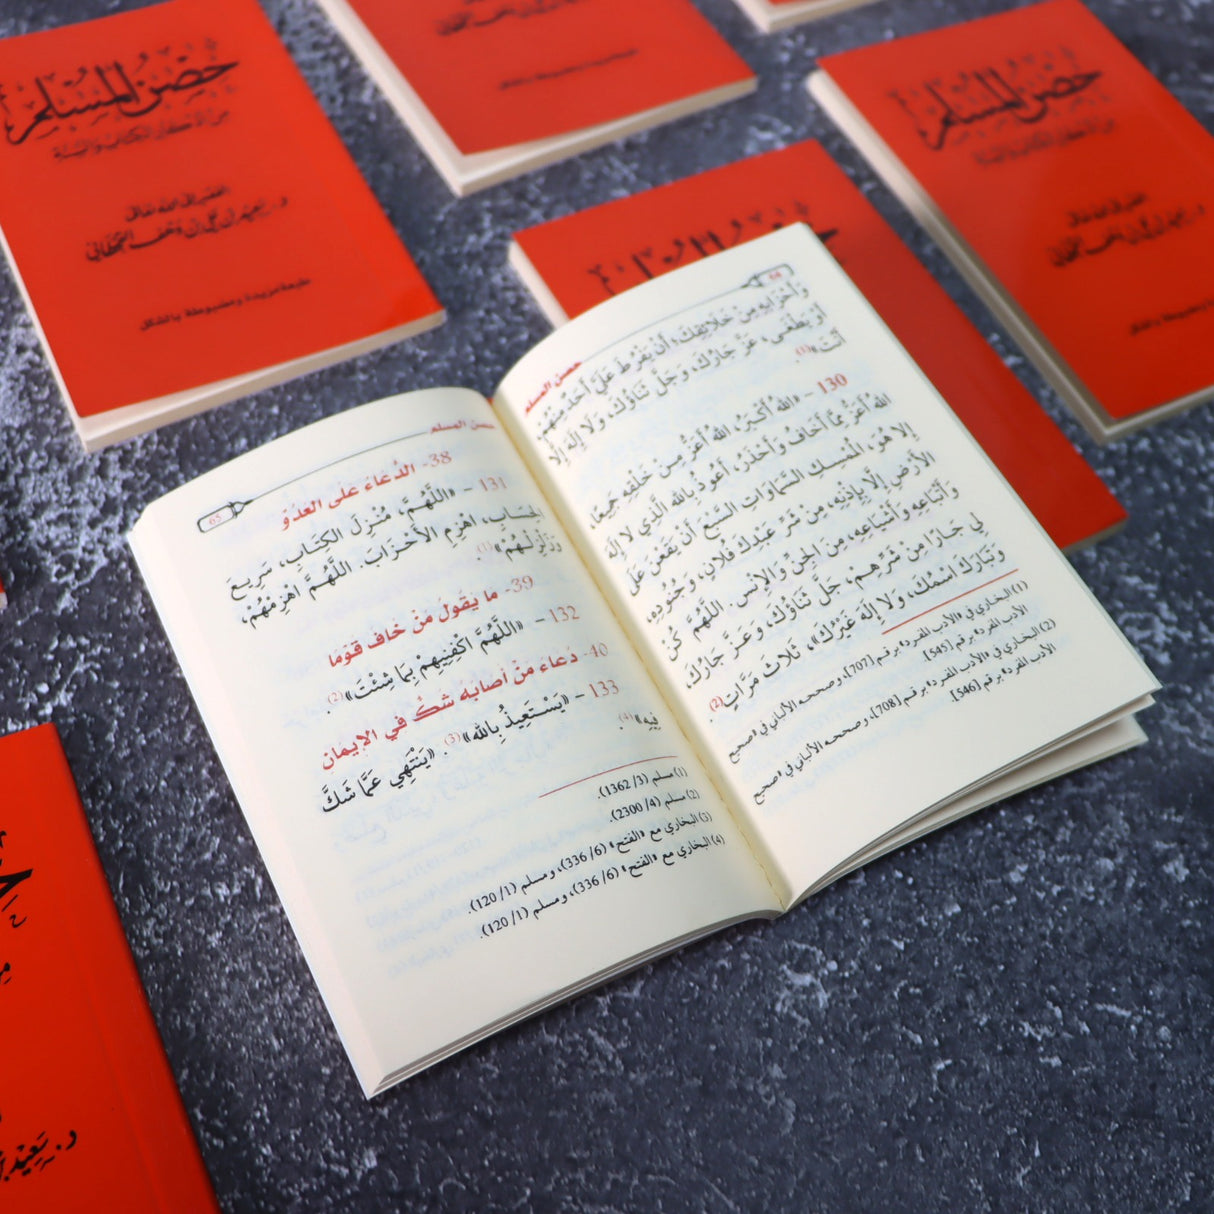 حصن المسلم
من أذكار الكتاب والسنة
الفقير إلى الله تعالى
د. سعيد بن علي بن وهف القحطاني
طبعة مزيدة ومضبوطة بالشكل
حصن المسلم
من أذكار الكتاب والسنة
64
حصن المسلم
وَأَحْزَابِهِ مِنْ خَلَائِقِكَ، أَنْ يَفْرُطَ عَلَيَّ أَحَدٌ مِنْهُمْ
أَوْ يَطْغَى، عَزَّ جَارُكَ، وَجَلَّ ثَنَاؤُكَ، وَلَا إِلَهَ إِلَّا
أَنْتَ»(1).
130 - «اللهُ أَكْبَرُ، اللهُ أَعَزُّ مِنْ خَلْقِهِ جَمِيعًا،
اللهُ أَعَزُّ مِمَّا أَخَافُ وَأَحْذَرُ، أَعُوذُ بِاللهِ الَّذِي لَا إِلَهَ
إِلَّا هُوَ، الْمُمْسِكِ السَّمَاوَاتِ السَّبْعِ أَنْ يَقَعْنَ عَلَى
الأَرْضِ إِلَّا بِإِذْنِهِ، مِنْ شَرِّ عَبْدِكَ فُلَانٍ، وَجُنُودِهِ،
وَأَتْبَاعِهِ وَأَشْيَاعِهِ، مِنَ الْجِنِّ وَالإِنْسِ. اللَّهُمَّ كُنْ
لِي جَارًا مِنْ شَرِّهِمْ، جَلَّ ثَنَاؤُكَ، وَعَزَّ جَارُكَ،
وَتَبَارَكَ اسْمُكَ، وَلَا إِلَهَ غَيْرُكَ»، ثَلَاثَ مَرَّاتٍ(2).
(1) البخاري في «الأدب المفرد» برقم [707]، وصححه الألباني في «صحيح
الأدب المفرد» برقم [545].
(2) البخاري في «الأدب المفرد» برقم [708]، وصححه الألباني في «صحيح
الأدب المفرد» برقم [546].
حصن المسلم
65
38- الدُّعَاءُ عَلَى العَدُوِّ
131 - «اللَّهُمَّ، مُنْزِلَ الكِتَابِ، سَرِيعَ
الحِسَابِ، اهْزِمِ الأَحْزَابَ. اللَّهُمَّ اهْزِمْهُمْ،
وَزَلْزِلْهُمْ»(1).
39- مَا يَقُولُ مَنْ خَافَ قَوْمًا
132 - «اللَّهُمَّ اكْفِنِيهِمْ بِمَا شِئْتَ»(2).
40- دُعَاءُ مَنْ أَصَابَهُ شَكٌّ فِي الإِيمَانِ
133 - «يَسْتَعِيذُ بِاللهِ»(3) «يَنْتَهِي عَمَّا شَكَّ
فِيهِ»(4).
(1) مسلم (3/ 1362).
(2) مسلم (4/ 2300).
(3) البخاري مع «الفتح» (6/ 336)، ومسلم (1/ 120).
(4) البخاري مع «الفتح» (6/ 336)، ومسلم (1/ 120).